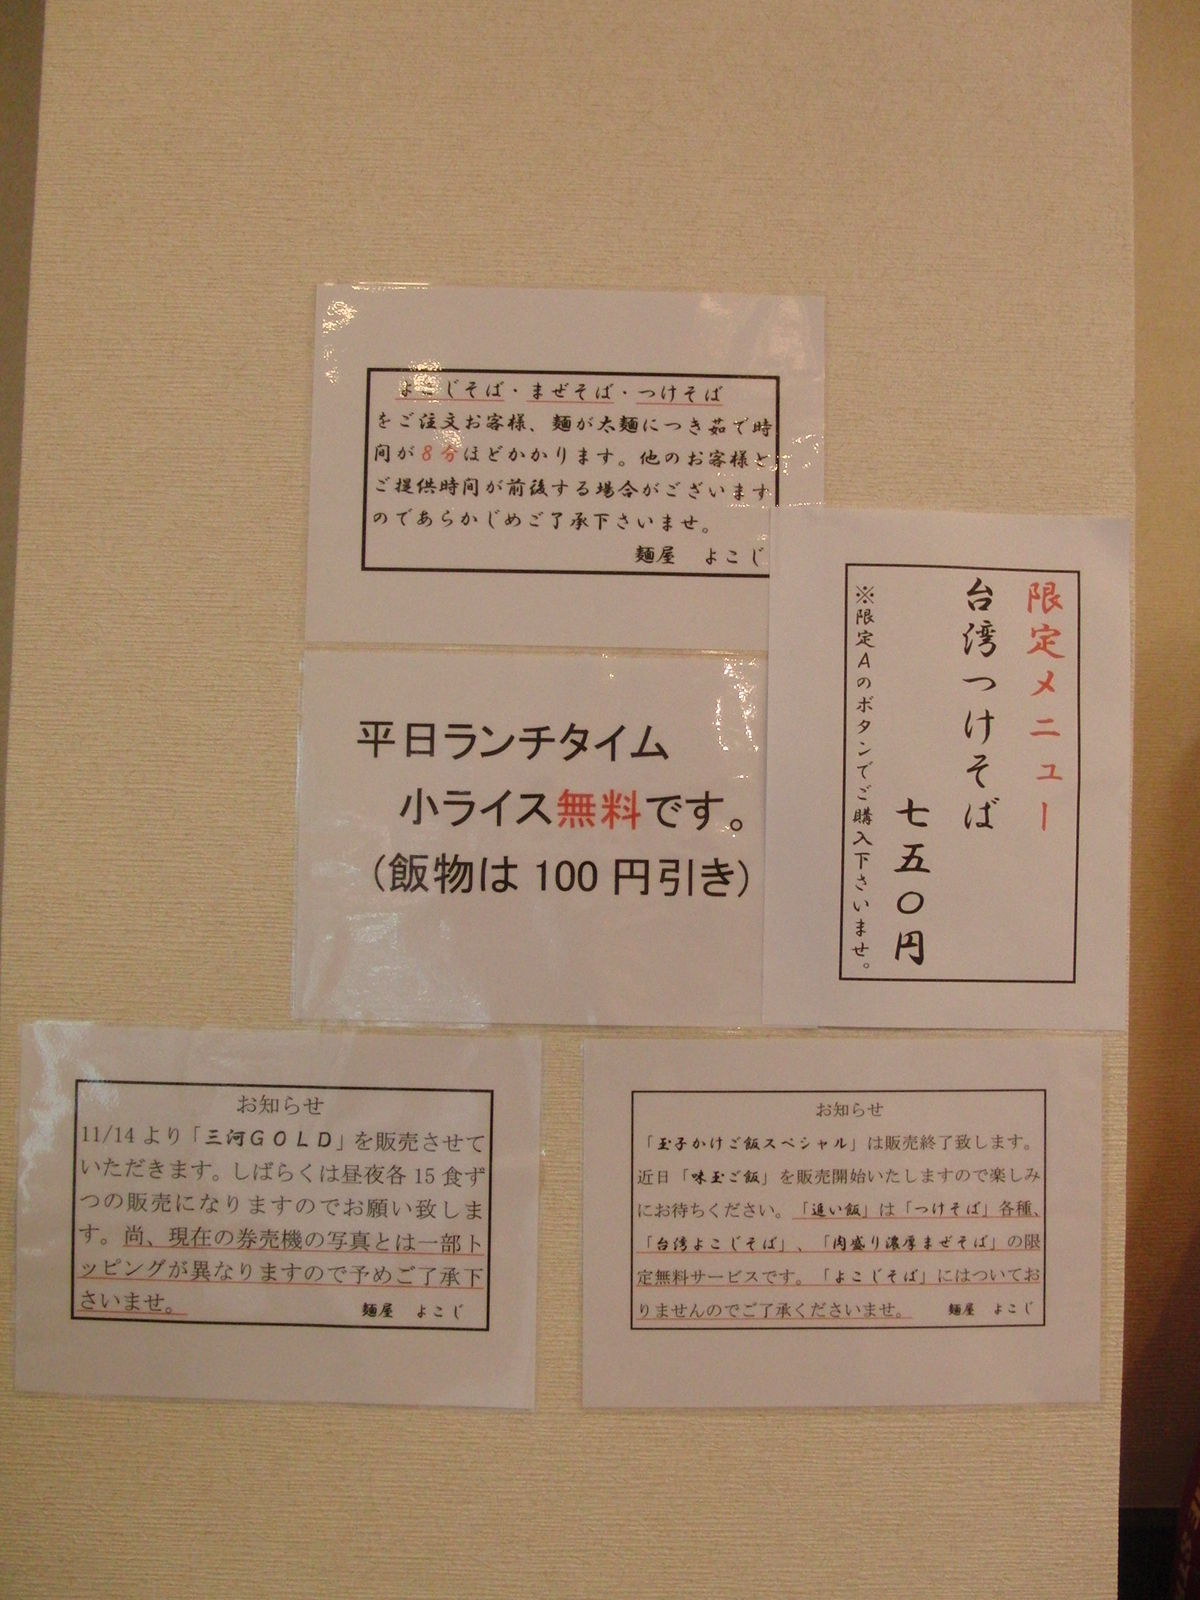 よこじそば・まぜそば・つけそば
をご注文お客様、麺が太麺につき茹で時
間が8分ほどかかります。他のお客様と
ご提供時間が前後する場合がございます
のであらかじめご了承下さいませ。
麺屋　よこじ
限定メニュー
台湾つけそば
七五〇円
※限定Aのボタンでご購入下さいませ。
平日ランチタイム
小ライス無料です。
(飯物は100円引き)
お知らせ
11/14より「三河GOLD」を販売させて
いただきます。しばらくは昼夜各15食ず
つの販売になりますのでお願い致しま
す。尚、現在の券売機の写真とは一部ト
ッピングが異なりますので予めご了承下
さいませ。　麺屋　よこじ
お知らせ
「玉子かけご飯スペシャル」は販売終了致します。
近日「味玉ご飯」を販売開始いたしますので楽しみ
にお待ちください。「追い飯」は「つけそば」各種、
「台湾よこじそば」、「肉盛り濃厚まぜそば」の限
定無料サービスです。「よこじそば」にはついてお
りませんのでご了承くださいませ。　麺屋　よこじ